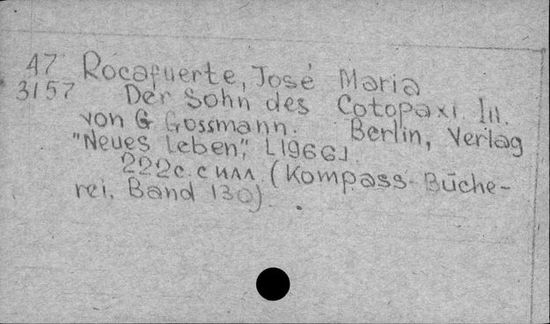 47 Rocafuerte, José Maria
3157 Der Sohn des Cotopaxi. Ill.
von G Gossmann. Berlin, Verlag
"Neues Leben", [1966].
222 с. с илл. (Kompass-Büche-
rei. Band 130).